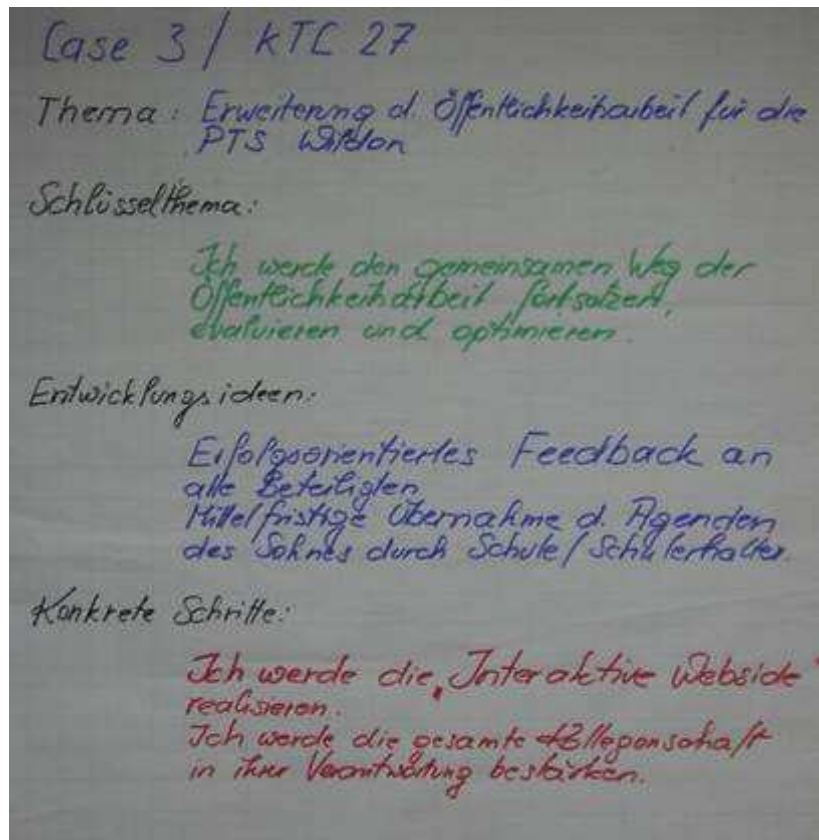 Case 3 / KTC 27
Thema: Erweiterung d. Öffentlichkeitsarbeit für die
PTS Wildon
Schlüsselthema:
Ich werde den gemeinsamen Weg der
Öffentlichkeitsarbeit fortsetzen,
evaluieren und optimieren.
Entwicklungsideen:
Erfolgsorientiertes Feedback an
alle Beteiligten
Mittelfristige Übernahme d. Agenden
des Sohnes durch Schule/Schulerhalter.
Konkrete Schritte:
Ich werde die „Interaktive Webside“
realisieren.
Ich werde die gesamte Kollegenschaft
in ihrer Verantwortung bestärken.